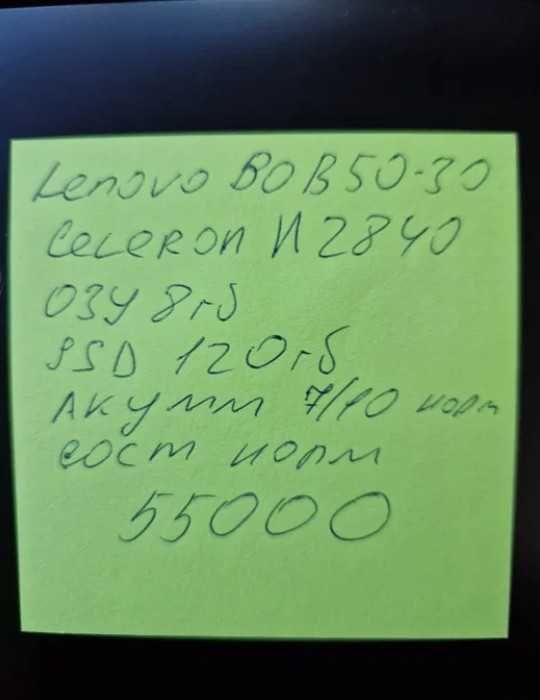 Lenovo BO B50-30
Celeron N2840
ОЗУ 8гб
SSD 120гб
Акумм 7/10 норм
сост норм
55000